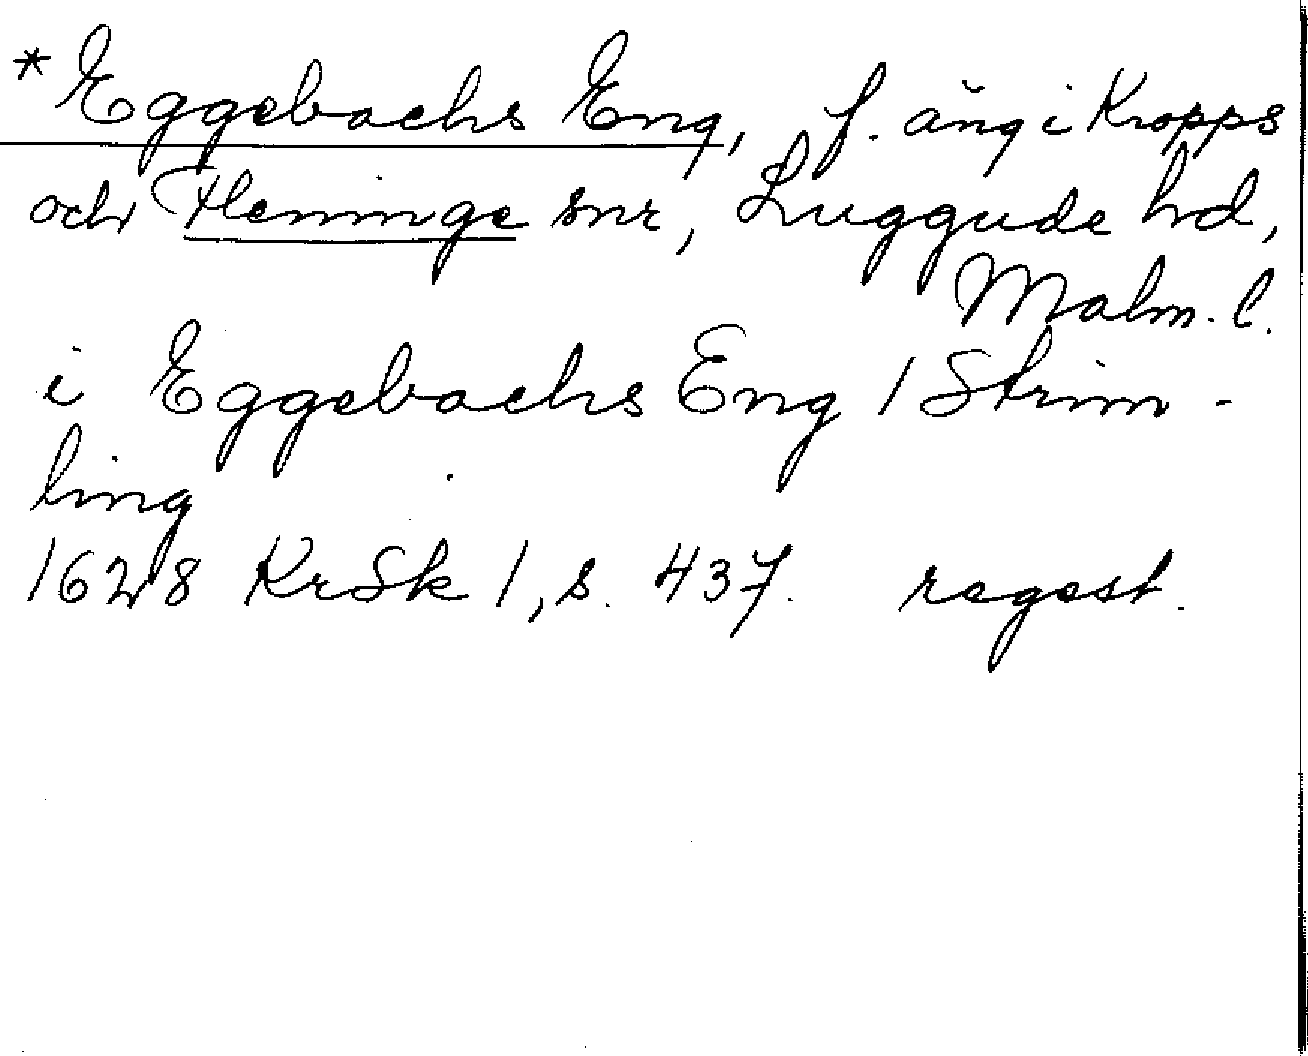 * Eggebachs Eng, f. äng i Kropps
och Fleninge snr, Luggude hd,
Malm. l.
i Eggebachs Eng / Strim-
ling
1628 KrSk 1, s. 437. regest.